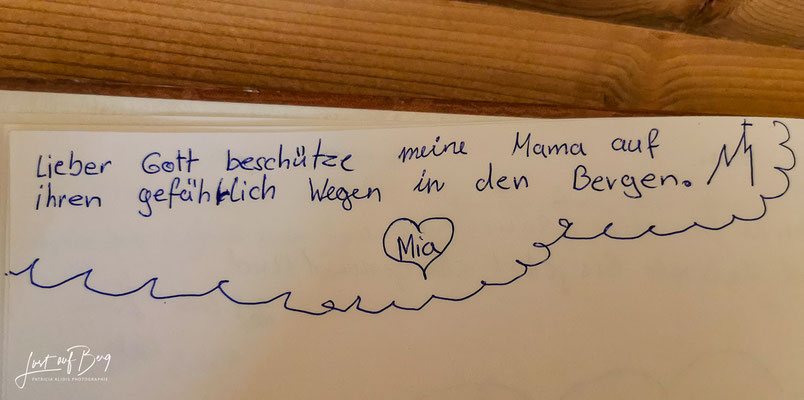 Lieber Gott beschütze meine Mama auf
ihren gefährlich Wegen in den Bergen.
Mia
Lust auf Berg